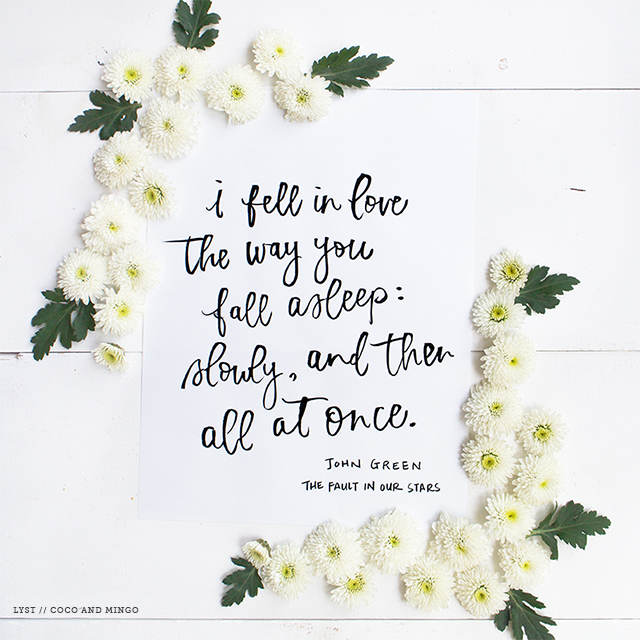 i fell in love
the way you
fall asleep:
slowly, and then
all at once.
JOHN GREEN
THE FAULT IN OUR STARS
LYST // COCO AND MINGO